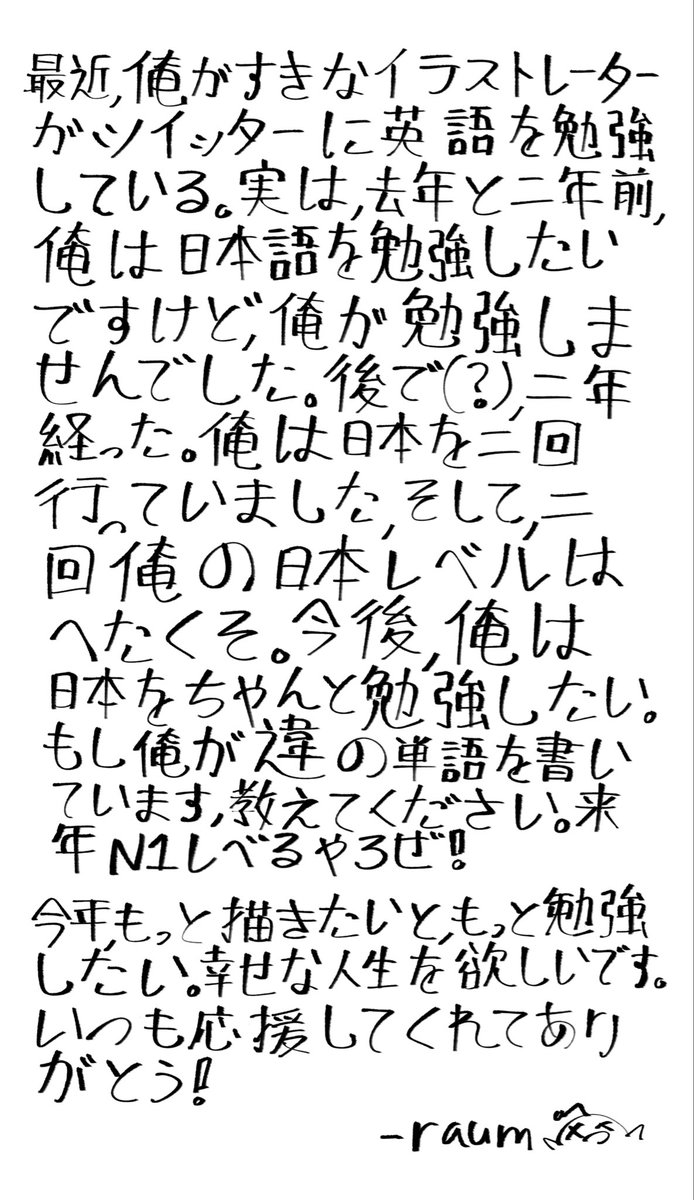 最近,俺がすきなイラストレーター
がツイッターに英語を勉強
している。実は,去年と二年前,
俺は日本語を勉強したい
ですけど,俺が勉強しま
せんでした。後で(?),二年
経った。俺は日本を二回
行っていました,そして,二
回俺の日本レベルは
へたくそ。今後,俺は
日本をちゃんと勉強したい。
もし俺が違の単語を書い
ています,教えてください。来
年N1レべるやろぜ!
今年,もっと描きたいと,もっと勉強
したい。幸せな人生を欲しいです。
いつも応援してくれてあり
がとう!
-raum